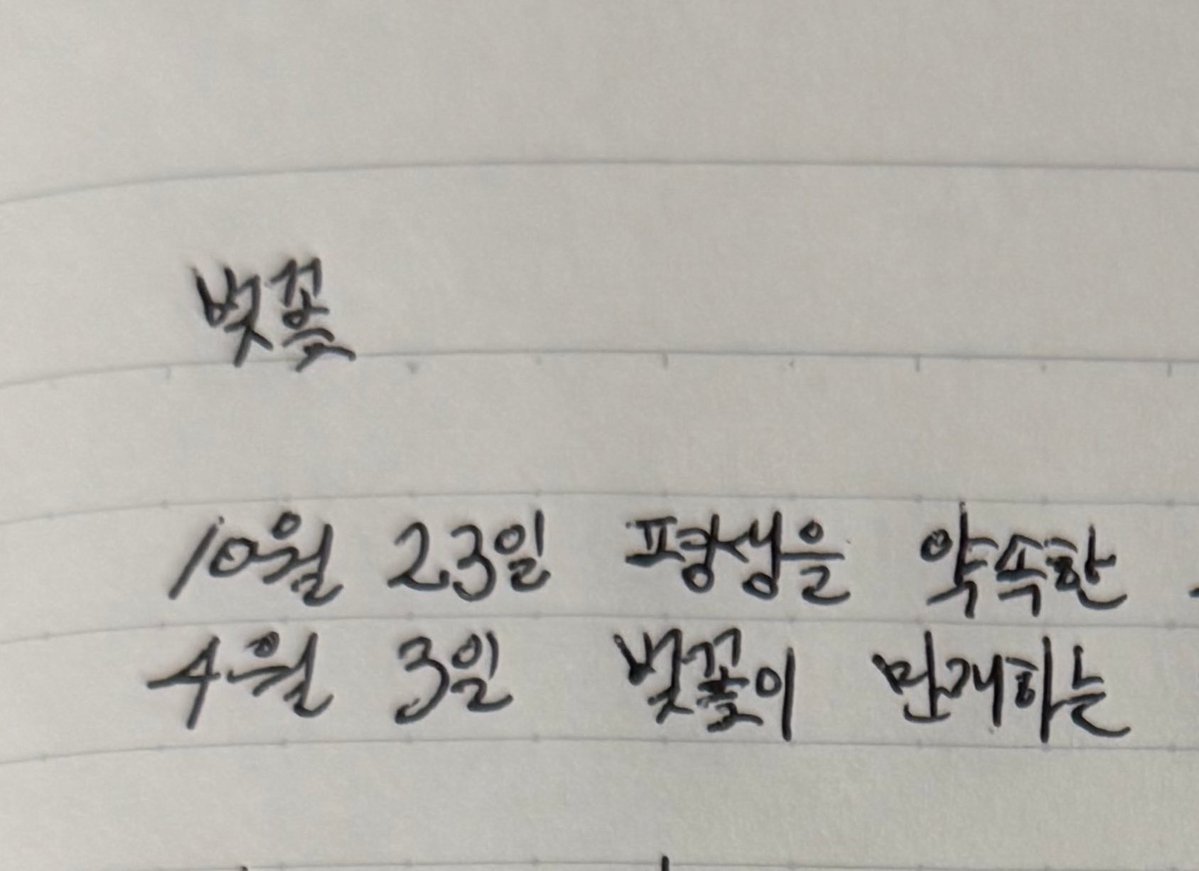 벚꽃
10월 23일 평생을 약속한
4월 3일 벚꽃이 만개하는